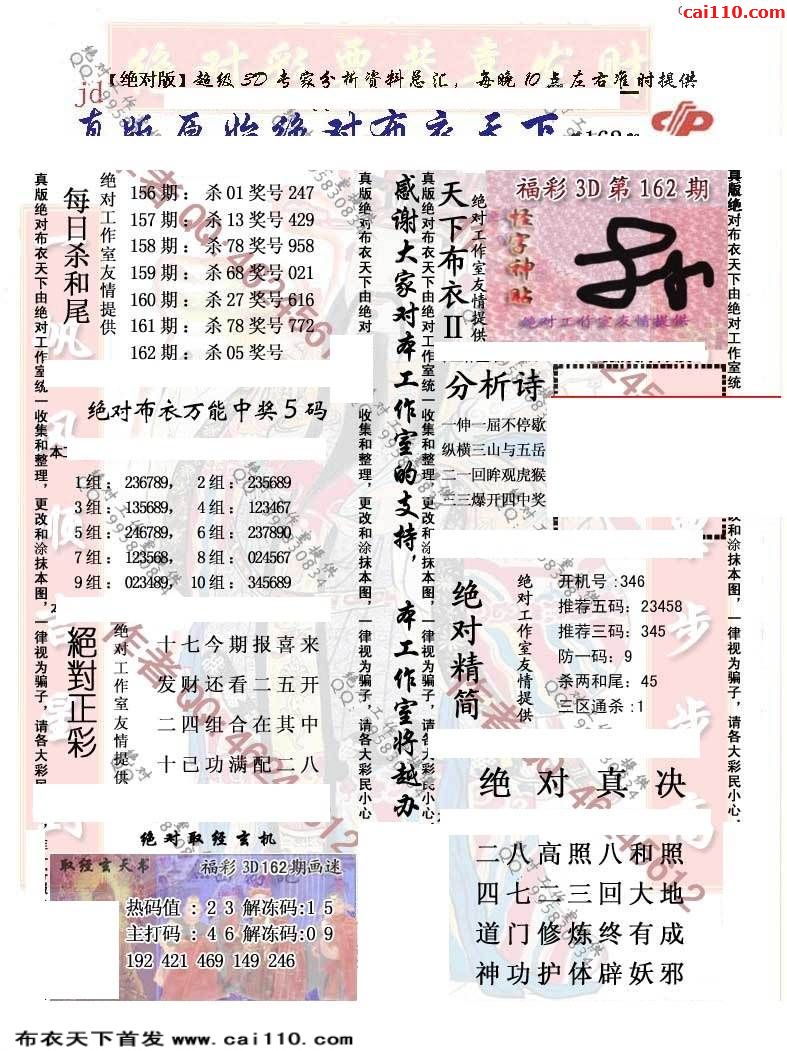 cai110.com
绝对彩票共享发财
【绝对版】超级3D专家分析资料总汇，每晚10点左右准时提供
jd
真版原始绝对布衣天下
真版绝对布衣天下由绝对工作室统一收集和整理，更改和涂抹本图，一律视为骗子，请各大彩民小心
每日杀和尾
绝对工作室友情提供
156期：杀01奖号247
157期：杀13奖号429
158期：杀78奖号958
159期：杀68奖号021
160期：杀27奖号616
161期：杀78奖号772
162期：杀05奖号
绝对布衣万能中奖5码
1组：236789， 2组：235689
3组：135689， 4组：123467
5组：246789， 6组：237890
7组：123568， 8组：024567
9组：023489， 10组：345689
絕對正彩
绝对工作室友情提供
十七今期报喜来
发财还看二五开
二四组合在其中
十己功满配二八
绝对取经玄机
取经玄天书
福彩3D162期画迷
热码值：23解冻码:15
主打码：46解冻码:09
192 421 469 149 246
感谢大家对本工作室的支持，本工作室将越办
真版绝对布衣天下由绝对工作室统一收集和整理，更改和涂抹本图，一律视为骗子，请各大彩民小心
天下布衣II
绝对工作室友情提供
福彩3D第162期
怪字神贴
绝对工作室友情提供
分析诗
一伸一屈不停歇
纵横三山与五岳
二一回眸观虎猴
三三爆开四中奖
绝对精简
绝对工作室友情提供
开机号:346
推荐五码：23458
推荐三码：345
防一码：9
杀两和尾：45
三区通杀:1
绝对真决
二八高照八和照
四七二三回大地
道门修炼终有成
神功护体辟妖邪
真版绝对布衣天下由绝对工作室统一收集和整理，更改和涂抹本图，一律视为骗子，请各大彩民小心
布衣天下首发 www.cai110.com